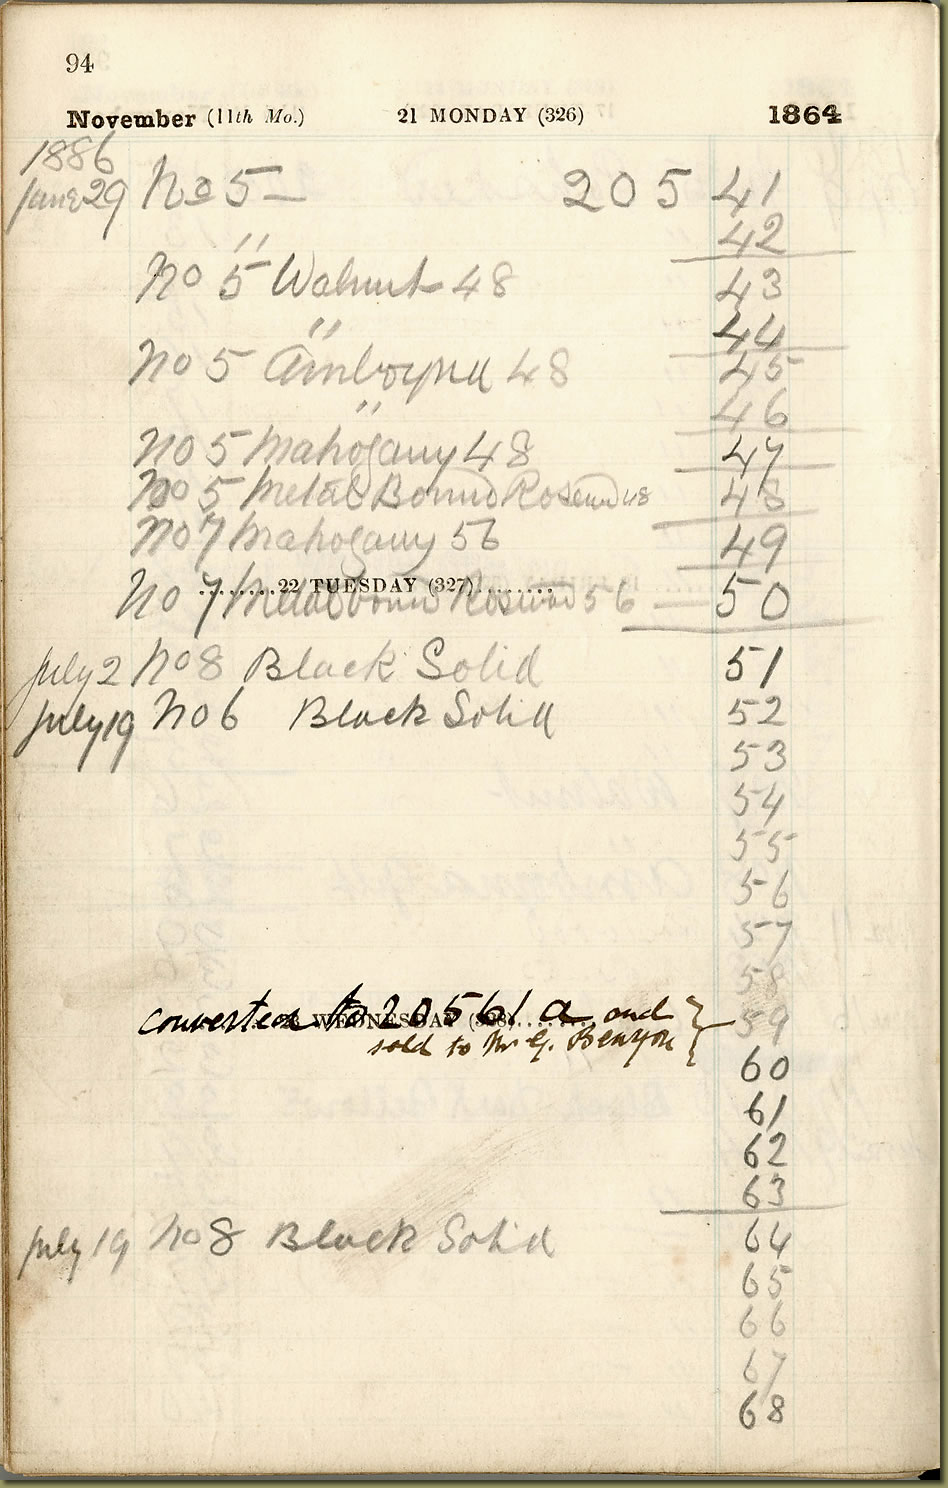 94
November (11th Mo.) 21 MONDAY (326) 1864
1886
June 29 No 5 — 205 41
42
No 5 " Walnut 48 43
44
No 5 " Amboyna 48 45
46
No 5 " Mahogany 48 47
No 5 Metal Bound Rosewd 48 48
No 7 Mahogany 56 49
22 TUESDAY (327)
No 7 Metal bound Rosewood 56 — 50
July 2 No 8 Black Solid 51
July 19 No 6 Black Solid 52
53
54
55
56
57
58
23 WEDNESDAY (328)
converted to 20561 a and 59
sold to Mr G. Benyon
60
61
62
63
July 19 No 8 Black Solid 64
65
66
67
68